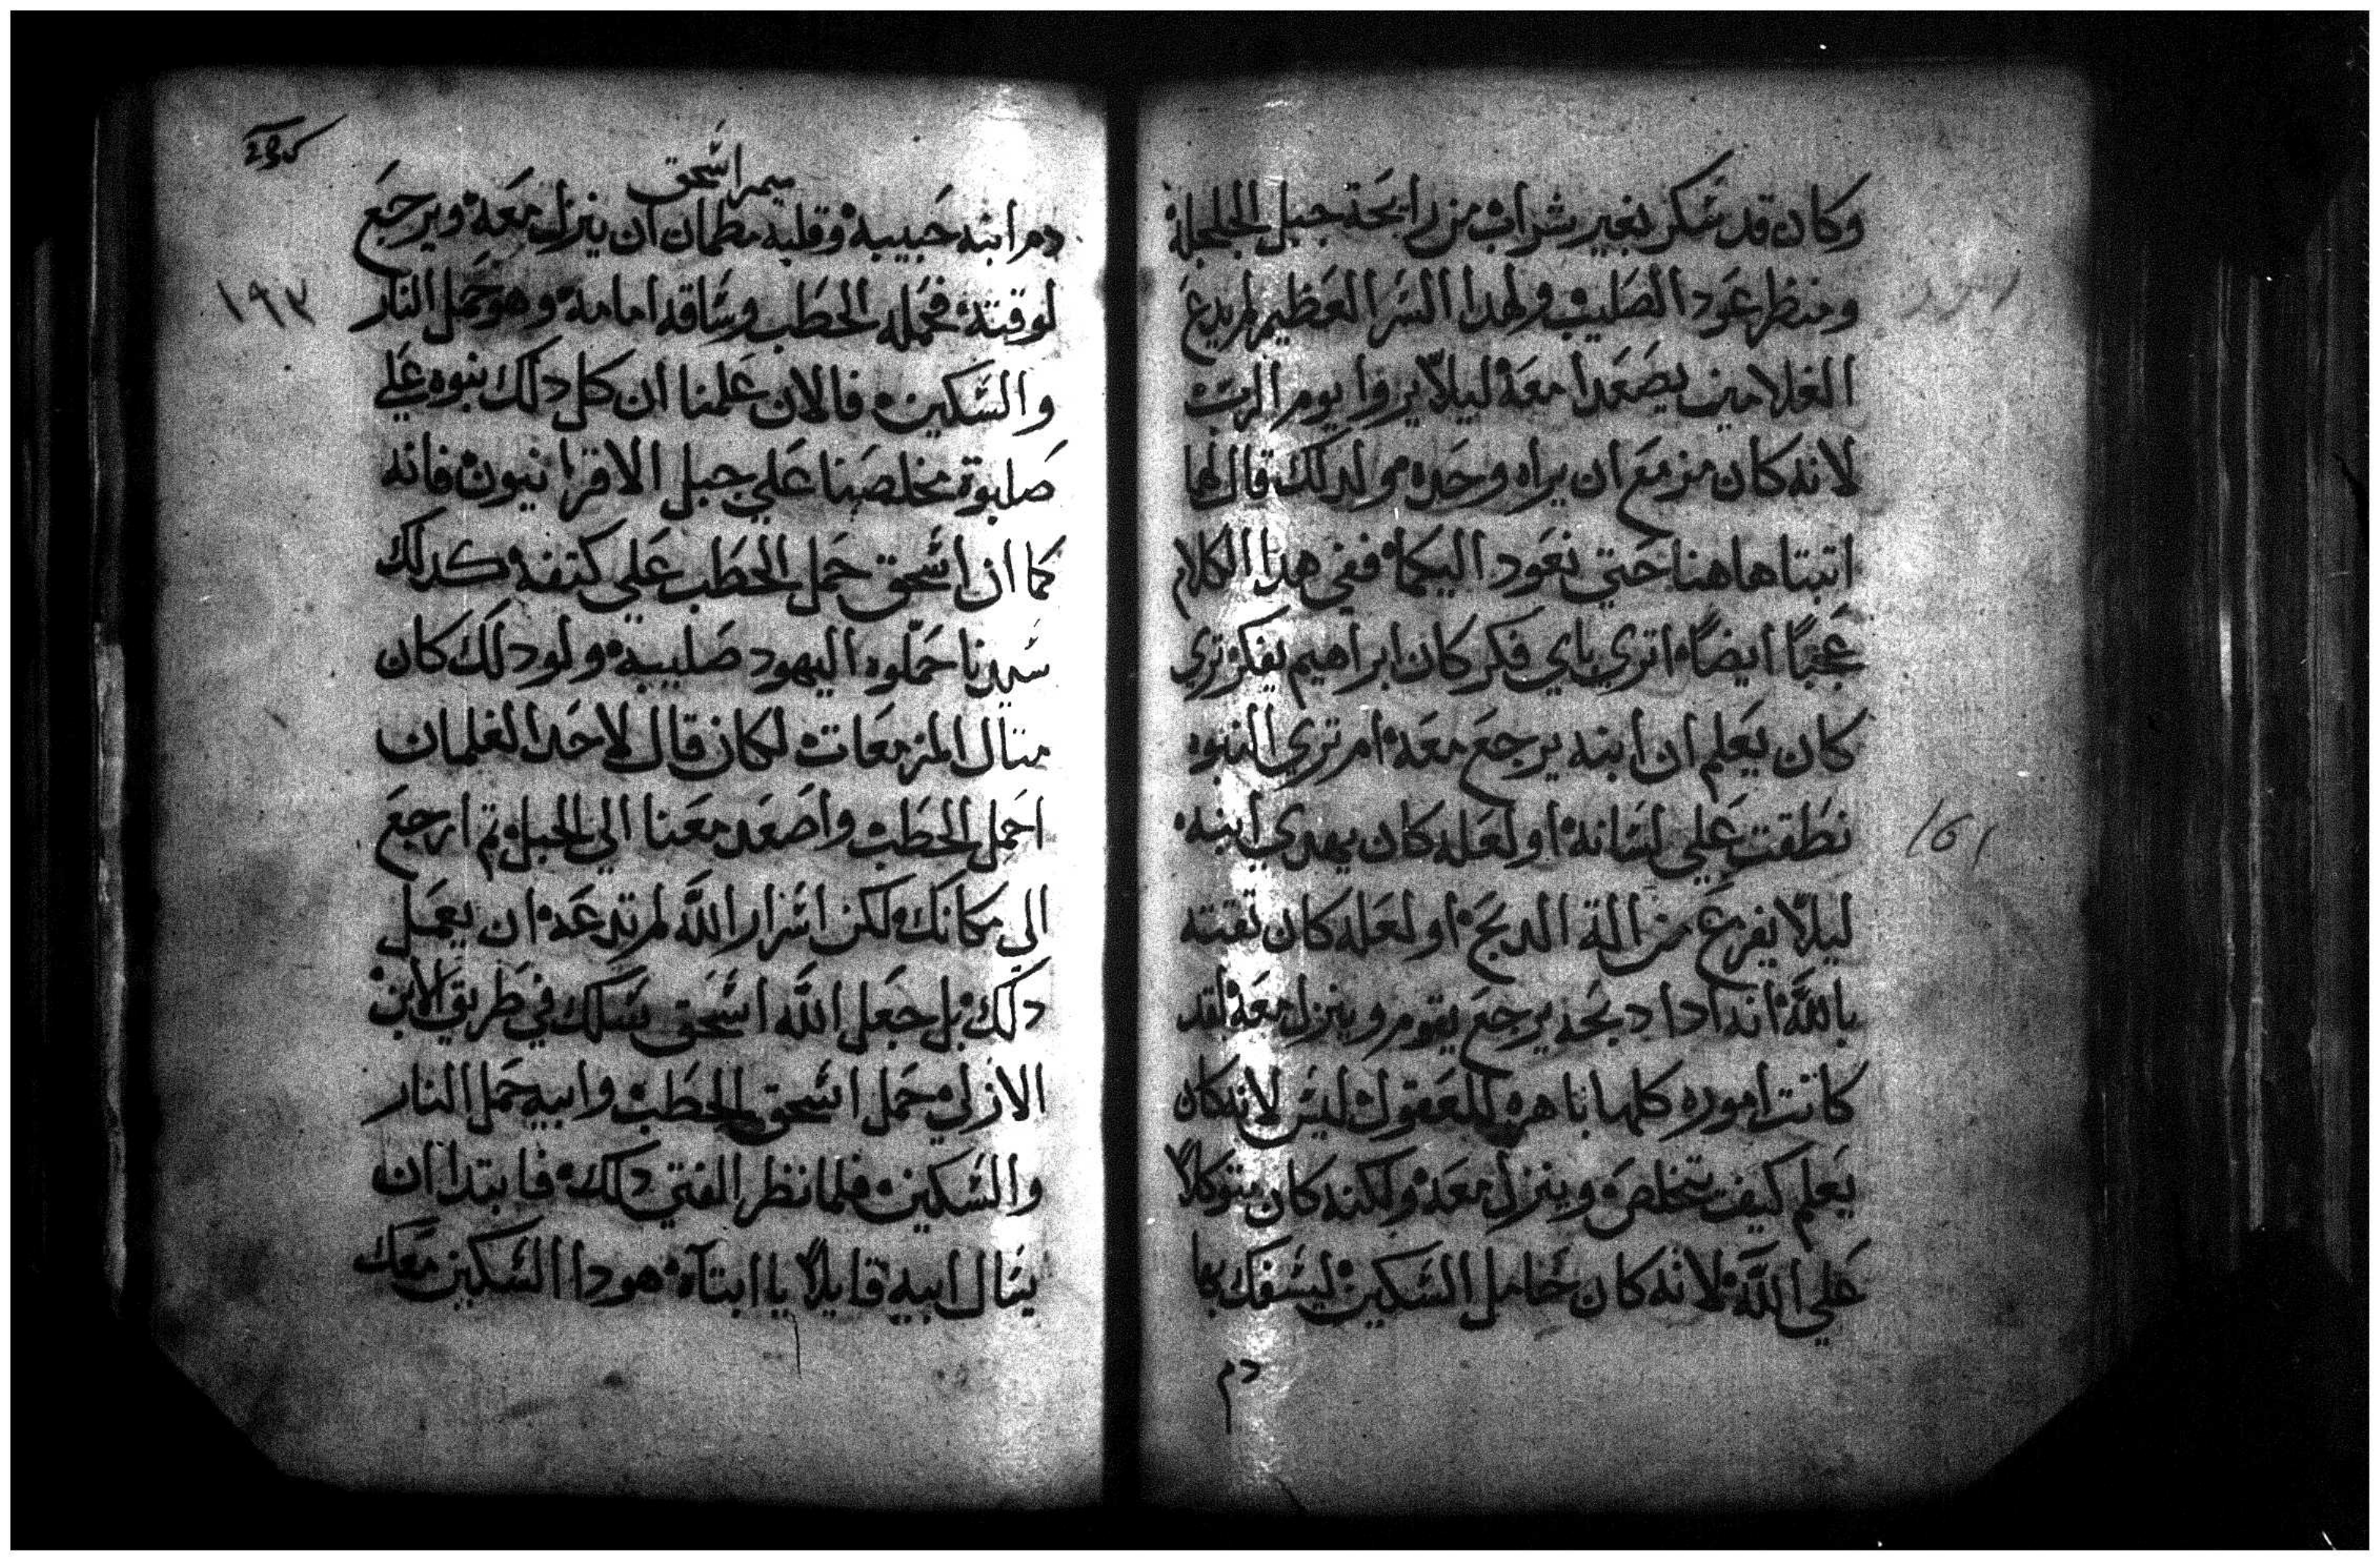 وكان قد سكر بغير شراب من رايحة جبل الجلجلة
ومنظر عود الصليب ولهدا السر العظيم لم يدع
الغلامين يصعدا معه ليلاً يروا يوم الرب
لانه كان مزمع ان يراه وحده ولدلك قال لها
اتبتا هاهنا حتي نعود اليكما ففي هدا الكلام
عجباً ايضاً اتري باي فكر كان ابراهيم يفكر تري
كان يعلم ان ابنه يرجع معه ام تري النبوه
نطقت علي لسانه او لعله كان يهدي ابنه
ليلاً يفزع من الة الدبح او لعله كان تقته
بالله انه ادا دبحه يرجع يقوم وينزل معه لقد
كانت اموره كلها باهره للعقول ليس لانه كان
يعلم كيف يتخلص وينزل معه ولكنه كان متوكلاً
علي الله لانه كان حامل السكين ليسفك بها
دم
١٦١
ميمر اسحق
دم ابنه حبيبه وقلبه مطمان ان ينزل معه ويرجع
لوقته فحمله الحطب وساقه امامه وهو حمل النار
والسكين فالان علمنا ان كل دلك نبوه علي
صلبوة مخلصنا علي جبل الاقرانيون فانه
كما ان اسحق حمل الحطب علي كتفه كدلك
سيدنا حملوه اليهود صليبه ولو دلك كان
متال المزمعات لكان قال لاحد الغلمان
احمل الحطب واصعد معنا الي الجبل تم ارجع
الى مكانك لكن اسرار الله لم تدعه ان يعمل
دلك بل جعل الله اسحق يسلك في طريق الابن
الازلي حمل اسحق الحطب وابيه حمل النار
والسكين فلما نظر الفتي دلك فابتدا ان
يسال ابيه قايلاً يا ابتاه هودا السكين معك
١٩٢